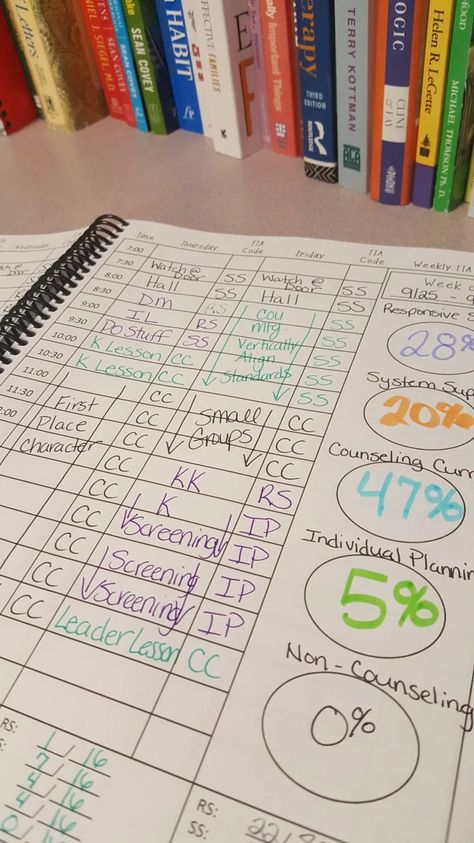 Letters
DANIEL J. SIEGEL, M.D.
SEAN COVEY
SEAN COVEY
HABIT
EFFECTIVE FAMILIES
Really Important Things
Therapy
THIRD EDITION
Routledge
TERRY KOTTMAN
LOGIC
CLINE & FAY
Helen R. LeGette
FOOD
MICHAEL THOMSON Ph. D.
Wednesday
Time Thursday TIA Code Friday TIA Code Weekly TIA
7:00 Watch @ Door SS Watch @ Door SS Week
7:30 Hall Hall 9/25 -
8:00 DM RS Cou SS Responsive
8:30 IL RS mtg. 28%
9:00 Do Stuff SS Vertically SS System Sup
9:30 K Lesson CC Align SS 20%
10:00 K Lesson CC Standards SS
10:30 SS Counseling Curr
11:00 First CC Small CC 47%
11:30 Place CC Groups CC
Character CC CC
CC KK RS Individual Planning
CC K IP 5%
CC Screening IP
CC Screening IP Non-Counseling
CC Screening IP 0%
CC Leader Lesson CC
RS: 1/16
7/16
4/16
4/16
0/16
RS:
SS: